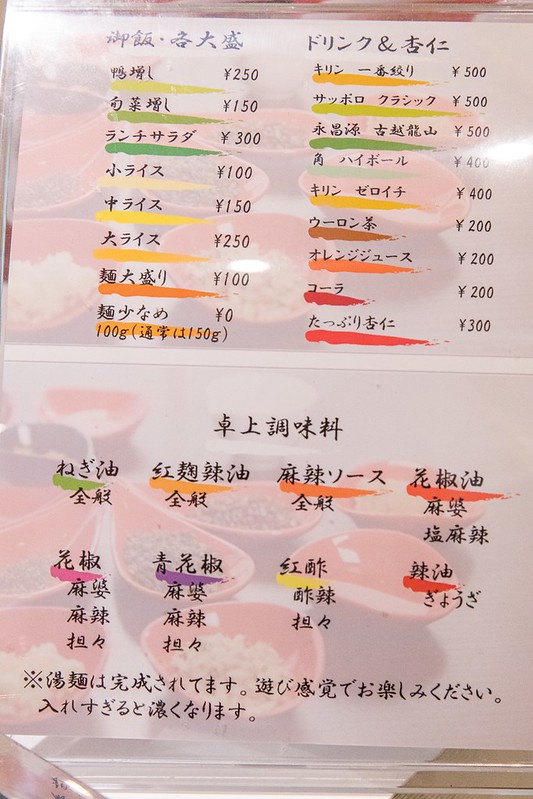 御飯・各大盛
鴨増し ¥250
旬菜増し ¥150
ランチサラダ ¥300
小ライス ¥100
中ライス ¥150
大ライス ¥250
麺大盛り ¥100
麺少なめ ¥0
100g(通常は150g)
ドリンク&杏仁
キリン 一番絞り ¥500
サッポロ クラシック ¥500
永昌源 古越龍山 ¥500
角 ハイボール ¥400
キリン ゼロイチ ¥400
ウーロン茶 ¥200
オレンジジュース ¥200
コーラ ¥200
たっぷり杏仁 ¥300
卓上調味料
ねぎ油
全般
紅麹辣油
全般
麻辣ソース
全般
花椒油
麻婆
塩麻辣
花椒
麻婆
麻辣
担々
青花椒
麻婆
麻辣
担々
紅酢
酢辣
担々
辣油
ぎょうざ
※湯麺は完成されてます。遊び感覚でお楽しみください。
入れすぎると濃くなります。